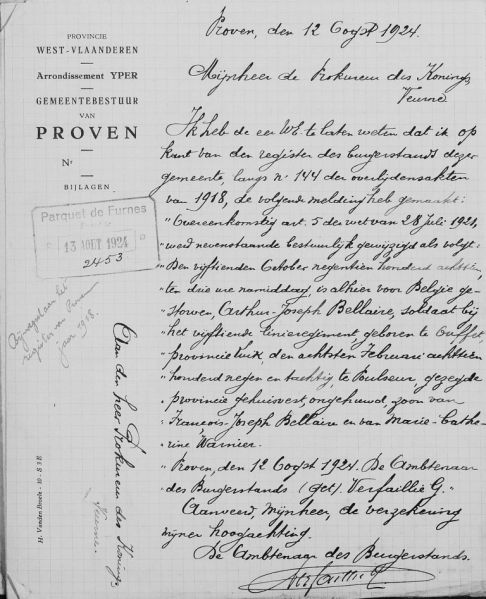 PROVINCIE
WEST-VLAANDEREN
Arrondissement YPER
GEMEENTEBESTUUR
VAN
PROVEN
Nr
BIJLAGEN
Parquet de Furnes
13 AOUT 1924
2453
register van
jaar 1918.
Aan den heer Prokureur des Konings
Veurne
H. Vanden Broele - 10 - S 3 E
Proven, den 12 Oogst 1924.
Mijnheer de Prokureur des Konings,
Veurne
Ik heb de eer UE. te laten weten dat ik op
kant van den register des burgerstands dezer
gemeente, langs nr 144 der overlijdensakten
van 1918, de volgende melding heb gemaakt:
"Overeenkomstig art. 5 der wet van 28 Juli 1921,
"werd nevenstaande bestuurlijk gewijzigd als volgt:
"Den vijftienden October negentien honderd achttien,
"ten drie ure namiddag, is alhier voor Belgie ge-
"storven, Arthur-Joseph Bellaire, soldaat bij
"het vijftiende linieregiment, geboren te Ouffet,
"provincie Luik, den achtsten Februari achttien
"honderd negen en tachtig, te Poulseur, gezegde
"provincie gehuisvest, ongehuwd, zoon van
"François-Joseph Bellaire en van Marie-Cathe-
"rine Warnier.
"Proven, den 12 Oogst 1924. De Ambtenaar
"des Burgerstands (get.) Verfaillie G."
Aanveerd, mijnheer, de verzekering
mijner hoogachting.
De Ambtenaar des Burgerstands.
Verfaillie G.